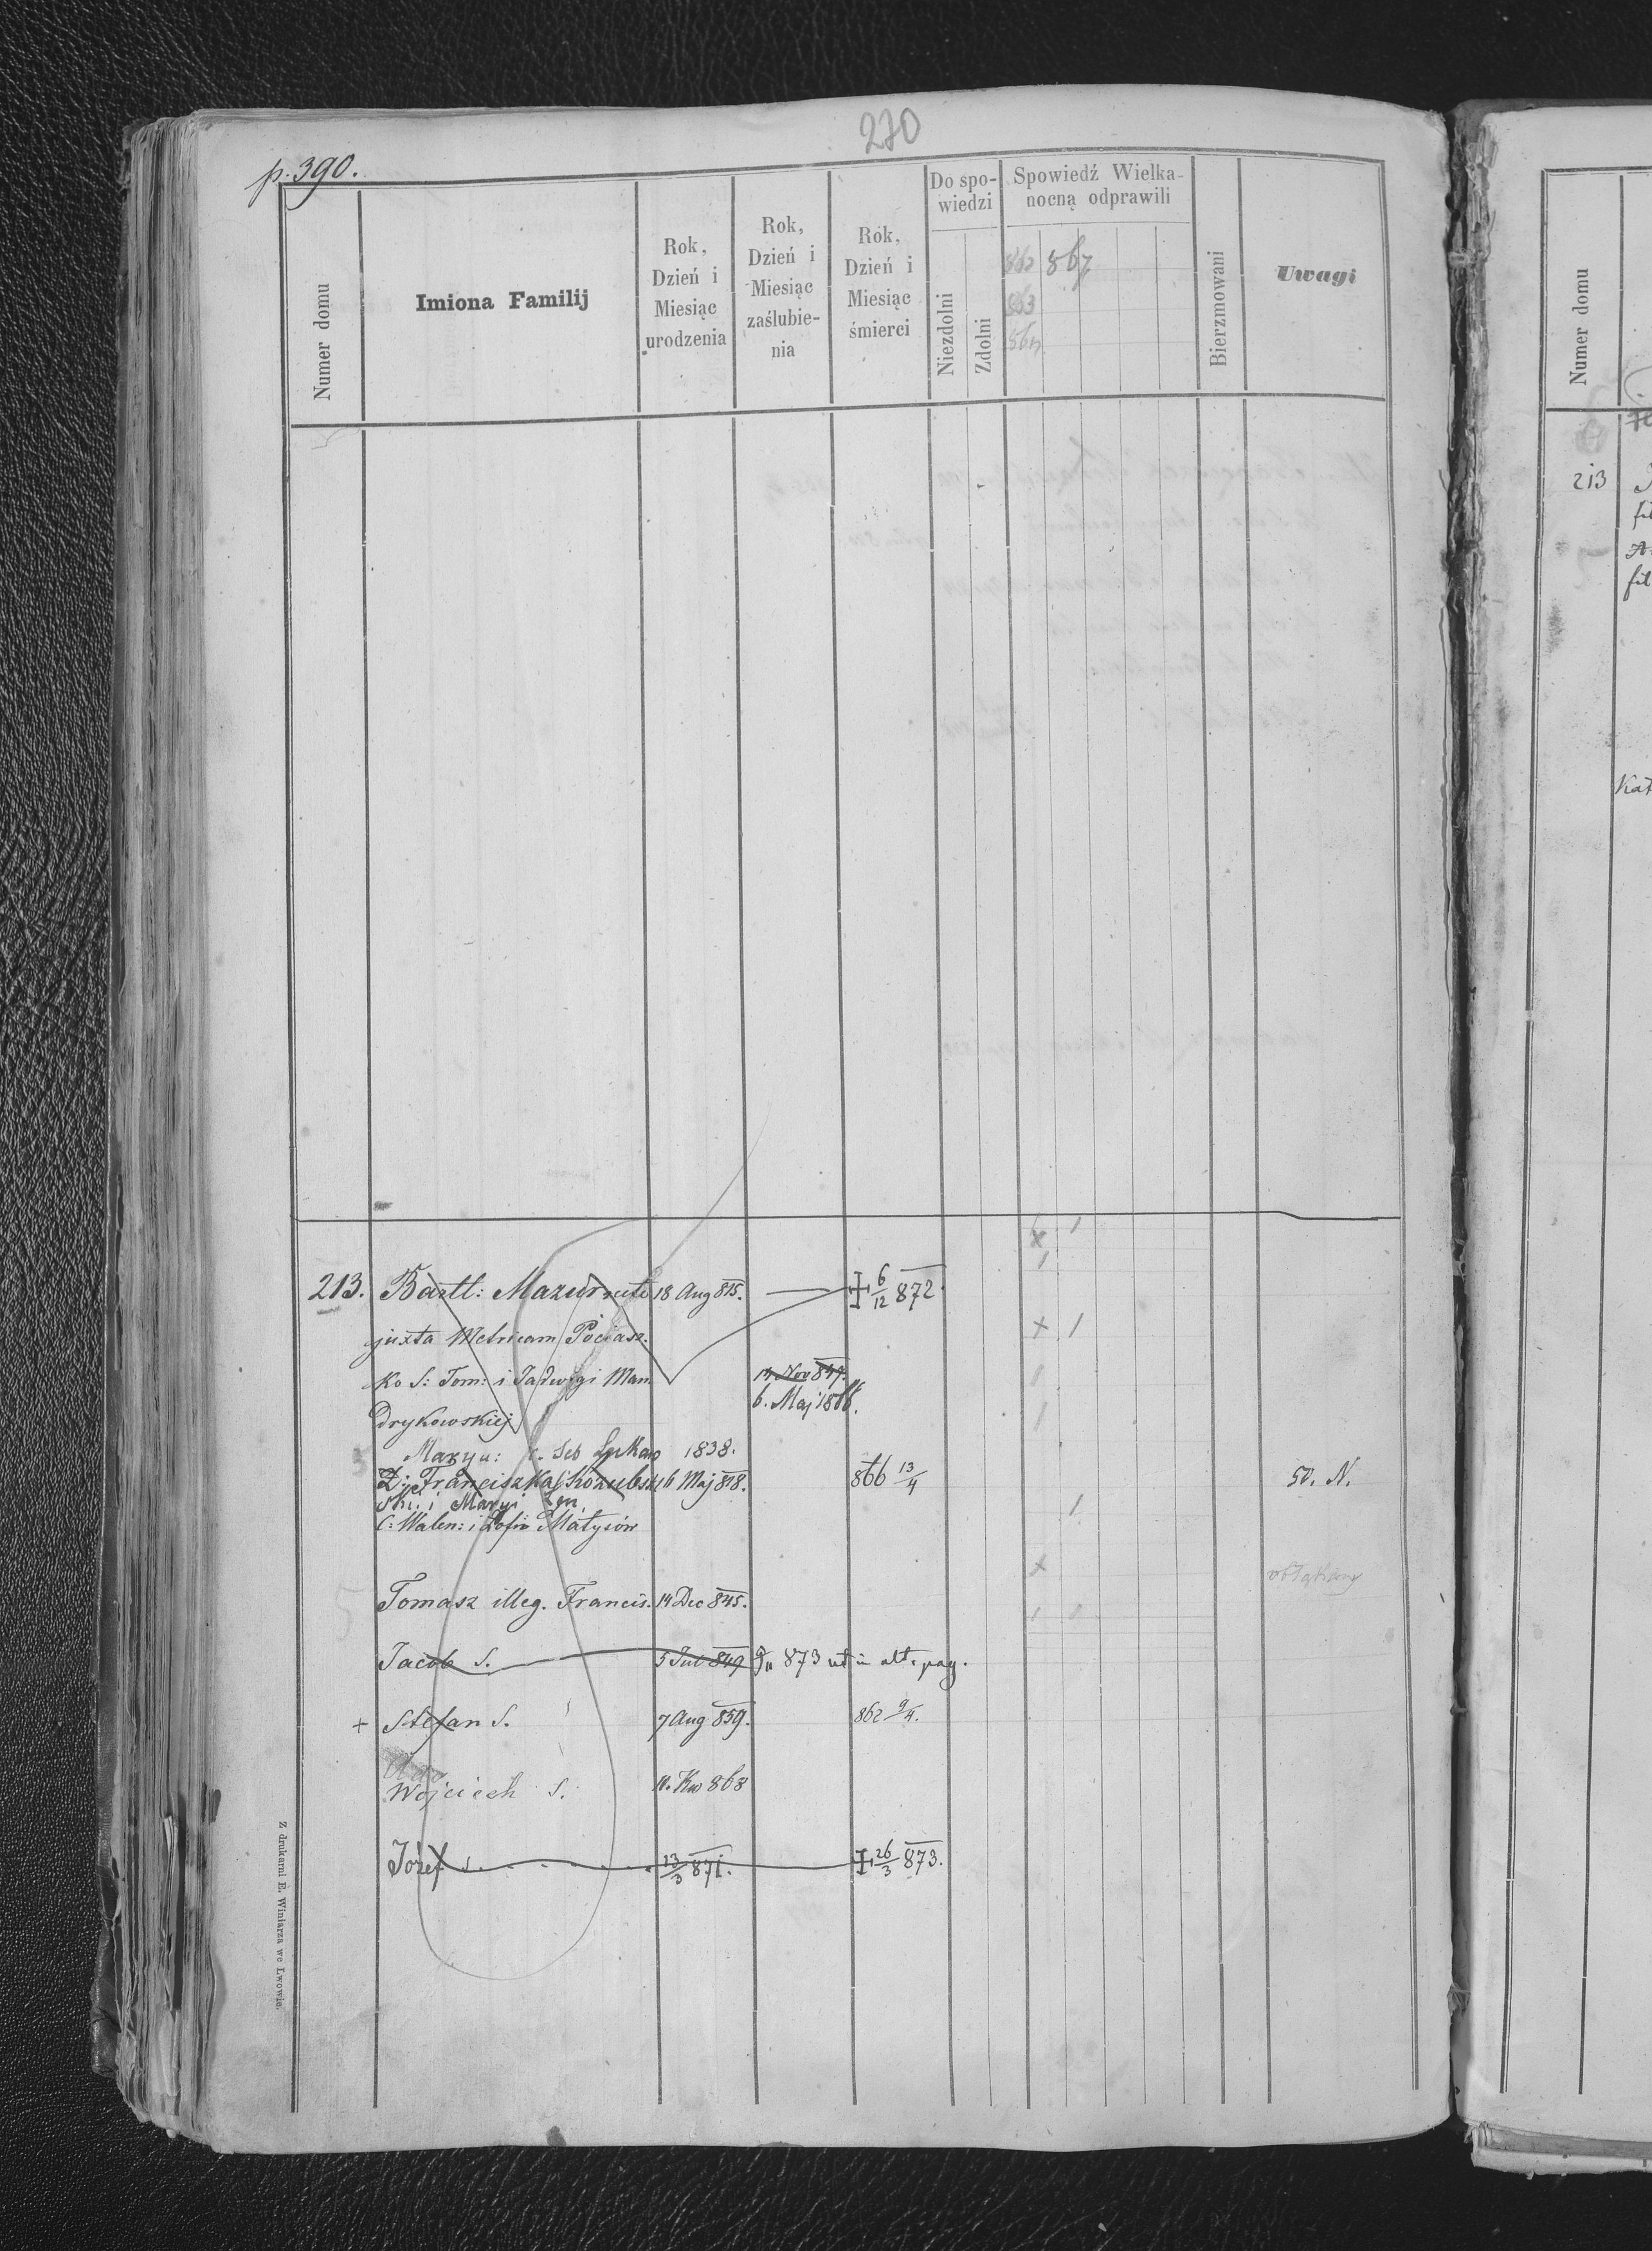 270
p. 390.
Numer domu
Imiona Familij
Rok, Dzień i Miesiąc urodzenia
Rok, Dzień i Miesiąc zaślubienia
Rok, Dzień i Miesiąc śmierci
Do spowiedzi
Niezdolni
Zdolni
Spowiedź Wielkanocną odprawili
862 867
863
864
Bierzmowani
Uwagi
213. Bartl: Mazur 18 Aug 815. 6/12 872.
juxta Metricam Pociasz.
Ko S: Tom: i Jadwigi Man
14 Nov 847.
drykowskiej
6. Maj 1866.
Maryu: C. Seb Lukas 1838.
Z: Franciszka Kozubska 16 Maj 818. 866 13/4 50. N.
C: Walen: i Zofii Matysów
Tomasz illeg. Francis. 14 Dec 845.
Jacob S. 5 Jul 849 873 ut in alt. pag.
+ Stefan S. 7 Aug 859. 862 9/4.
Wojciech S. Kw 863
Józef S. 13/3 871. 26/3 873.
Z drukarni E. Winiarza we Lwowie.
Numer domu
213
fil
fil
Kat